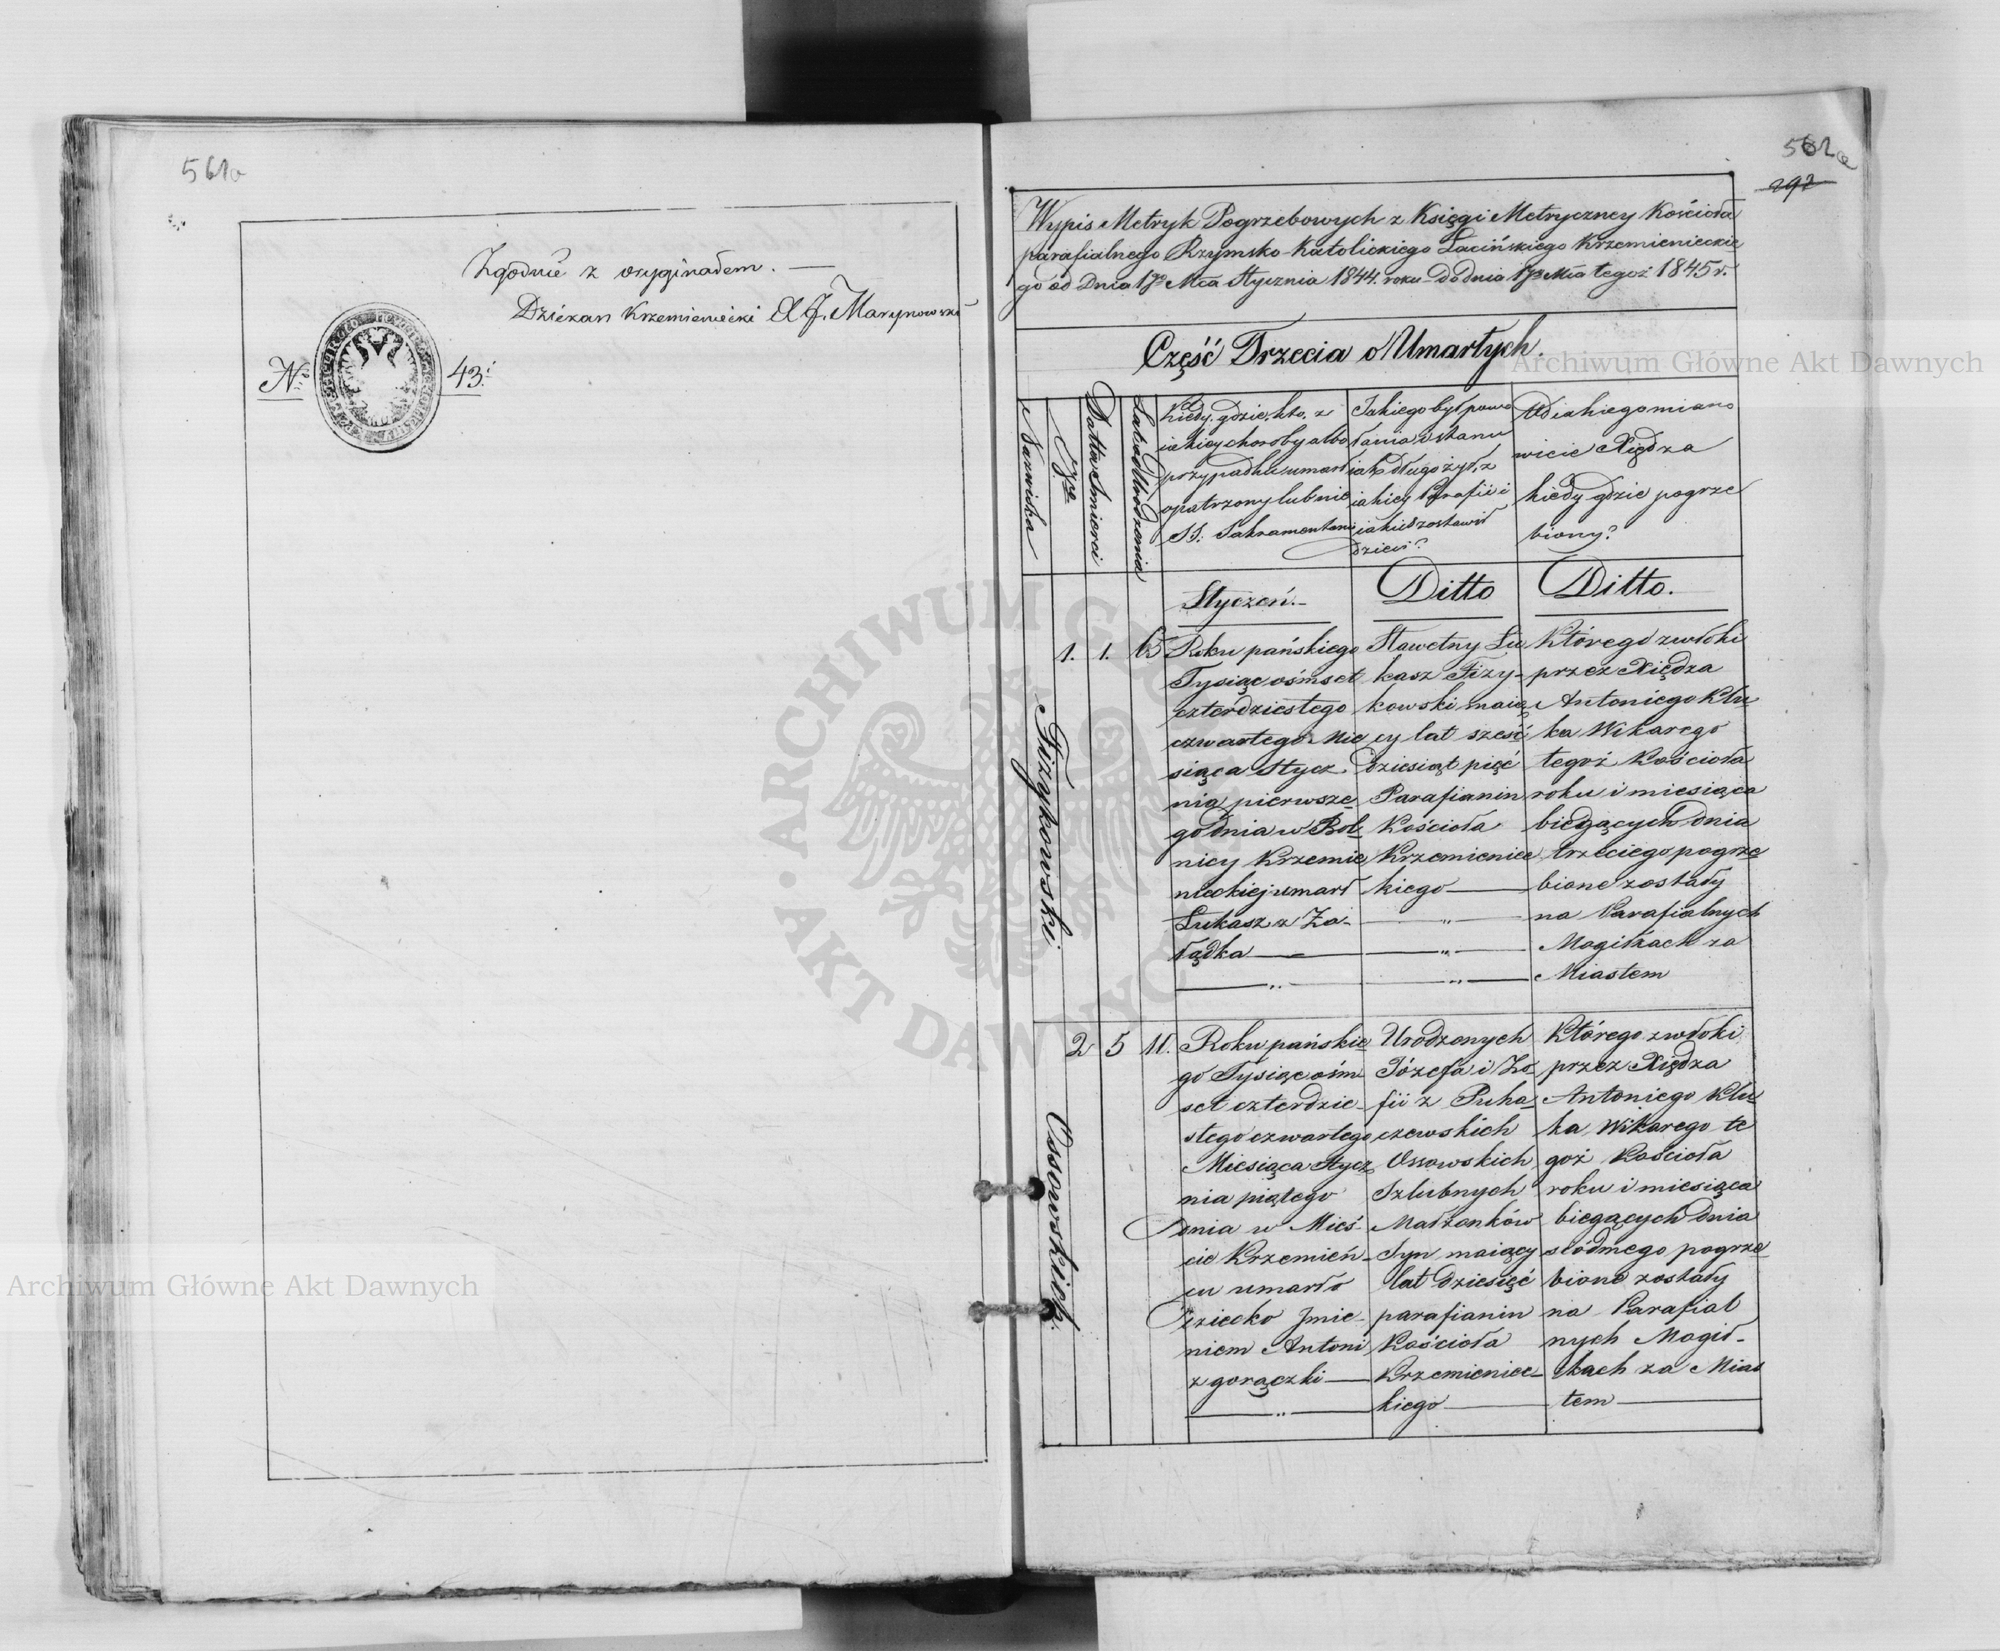 561a
Zgodnie z oryginałem. —
Dziekan Krzemieniecki X J. Marynowski
No 43.
562a
292
Wypis Metryk Pogrzebowych z Księgi Metryczney Kościoła
parafialnego Rzymsko-Katolickiego Łacińskiego Krzemienieckie
go od Dnia 1go Mca Stycznia 1844. roku Do dnia 1go Mca tegoż 1845 r.
Część Trzecia o Umarłych.
Nazwiska
Datta Smierci
Lata od Urodzenia
Kiedy, gdzie, kto, z
iakiey choroby albo
przypadku umarł
opatrzony lub nie
SS. Sakramentami
Jakiego był powo
łania, i stanu
iak długo żył, z
iakiey Parafii i
iakie zostawił
dzieci?
Od iakiego miano
wicie Xiędza
kiedy gdzie pogrze
biony?
Styczeń.
Ditto
Ditto.
Fizykowski
1.
1.
65
Roku pańskiego
Tysiąc ośmset
czterdziestego
czwartego Mie
siąca Stycz
nia pierwsze
go dnia w Rol
nicy Krzemie
nieckiej umarł
Łukasz z Żo-
łądka
Sławetny Łu
kasz Fizy-
kowski maią
cy lat sześć
dziesiąt pięć
Parafianin
Kościoła
Krzemieniec
kiego
Którego zwłoki
przez Xiędza
Antoniego Klu
ka Wikarego
tegoż Kościoła
roku i miesiąca
bieżących dnia
trzeciego pogrze
bione zostały
na Parafialnych
Mogiłkach za
Miastem
Ossowskich.
2
5
11.
Roku pańskie
go Tysiąc ośm
set czterdzie-
stego czwartego
Miesiąca Stycz
nia piątego
Dnia w Mieś-
cie Krzemień-
cu umarło
Dziecko Jmie-
niem Antoni
z gorączki
Urodzonych
Józefa i Zo-
fii z Pucha-
czewskich
Ossowskich
Szlubnych
Małżonków
Syn maiący
lat dziesięć
parafianin
Kościoła
Krzemieniec-
kiego
Którego zwłoki
przez Xiędza
Antoniego Klu-
ka Wikarego te
goż Kościoła
roku i miesiąca
bieżących dnia
siódmego pogrze-
bione zostały
na Parafial
nych Mogił-
kach za Mias
tem
Archiwum Główne Akt Dawnych
Archiwum Główne Akt Dawnych
ARCHIWUM GŁÓWNE AKT DAWNYCH